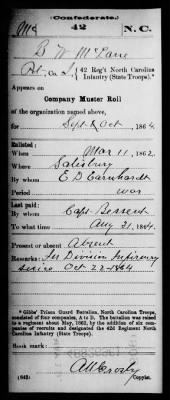 (Confederate.)
Mc 42 N.C.
B W McLane
Pvt, Co. I, 42 Reg't North Carolina
Infantry (State Troops).*
Appears on
Company Muster Roll
of the organization named above,
for Sept & Oct, 1864.
Enlisted:
When Mar 11, 1862.
Where Salisbury
By whom E D Earnhardt
Period war
Last paid:
By whom Capt Bessent
To what time Aug 31, 1864.
Present or absent Absent
Remarks: In Division Infirmary
since Oct 22-1864
*Gibbs' Prison Guard Battalion, North Carolina Troops,
consisted of four companies, A to D. The battalion was raised to
a regiment about May, 1862, by the addition of six com-
panies of recruits and designated the 42d Regiment North
Carolina Infantry (State Troops).
Book mark:
(642)
Copyist.